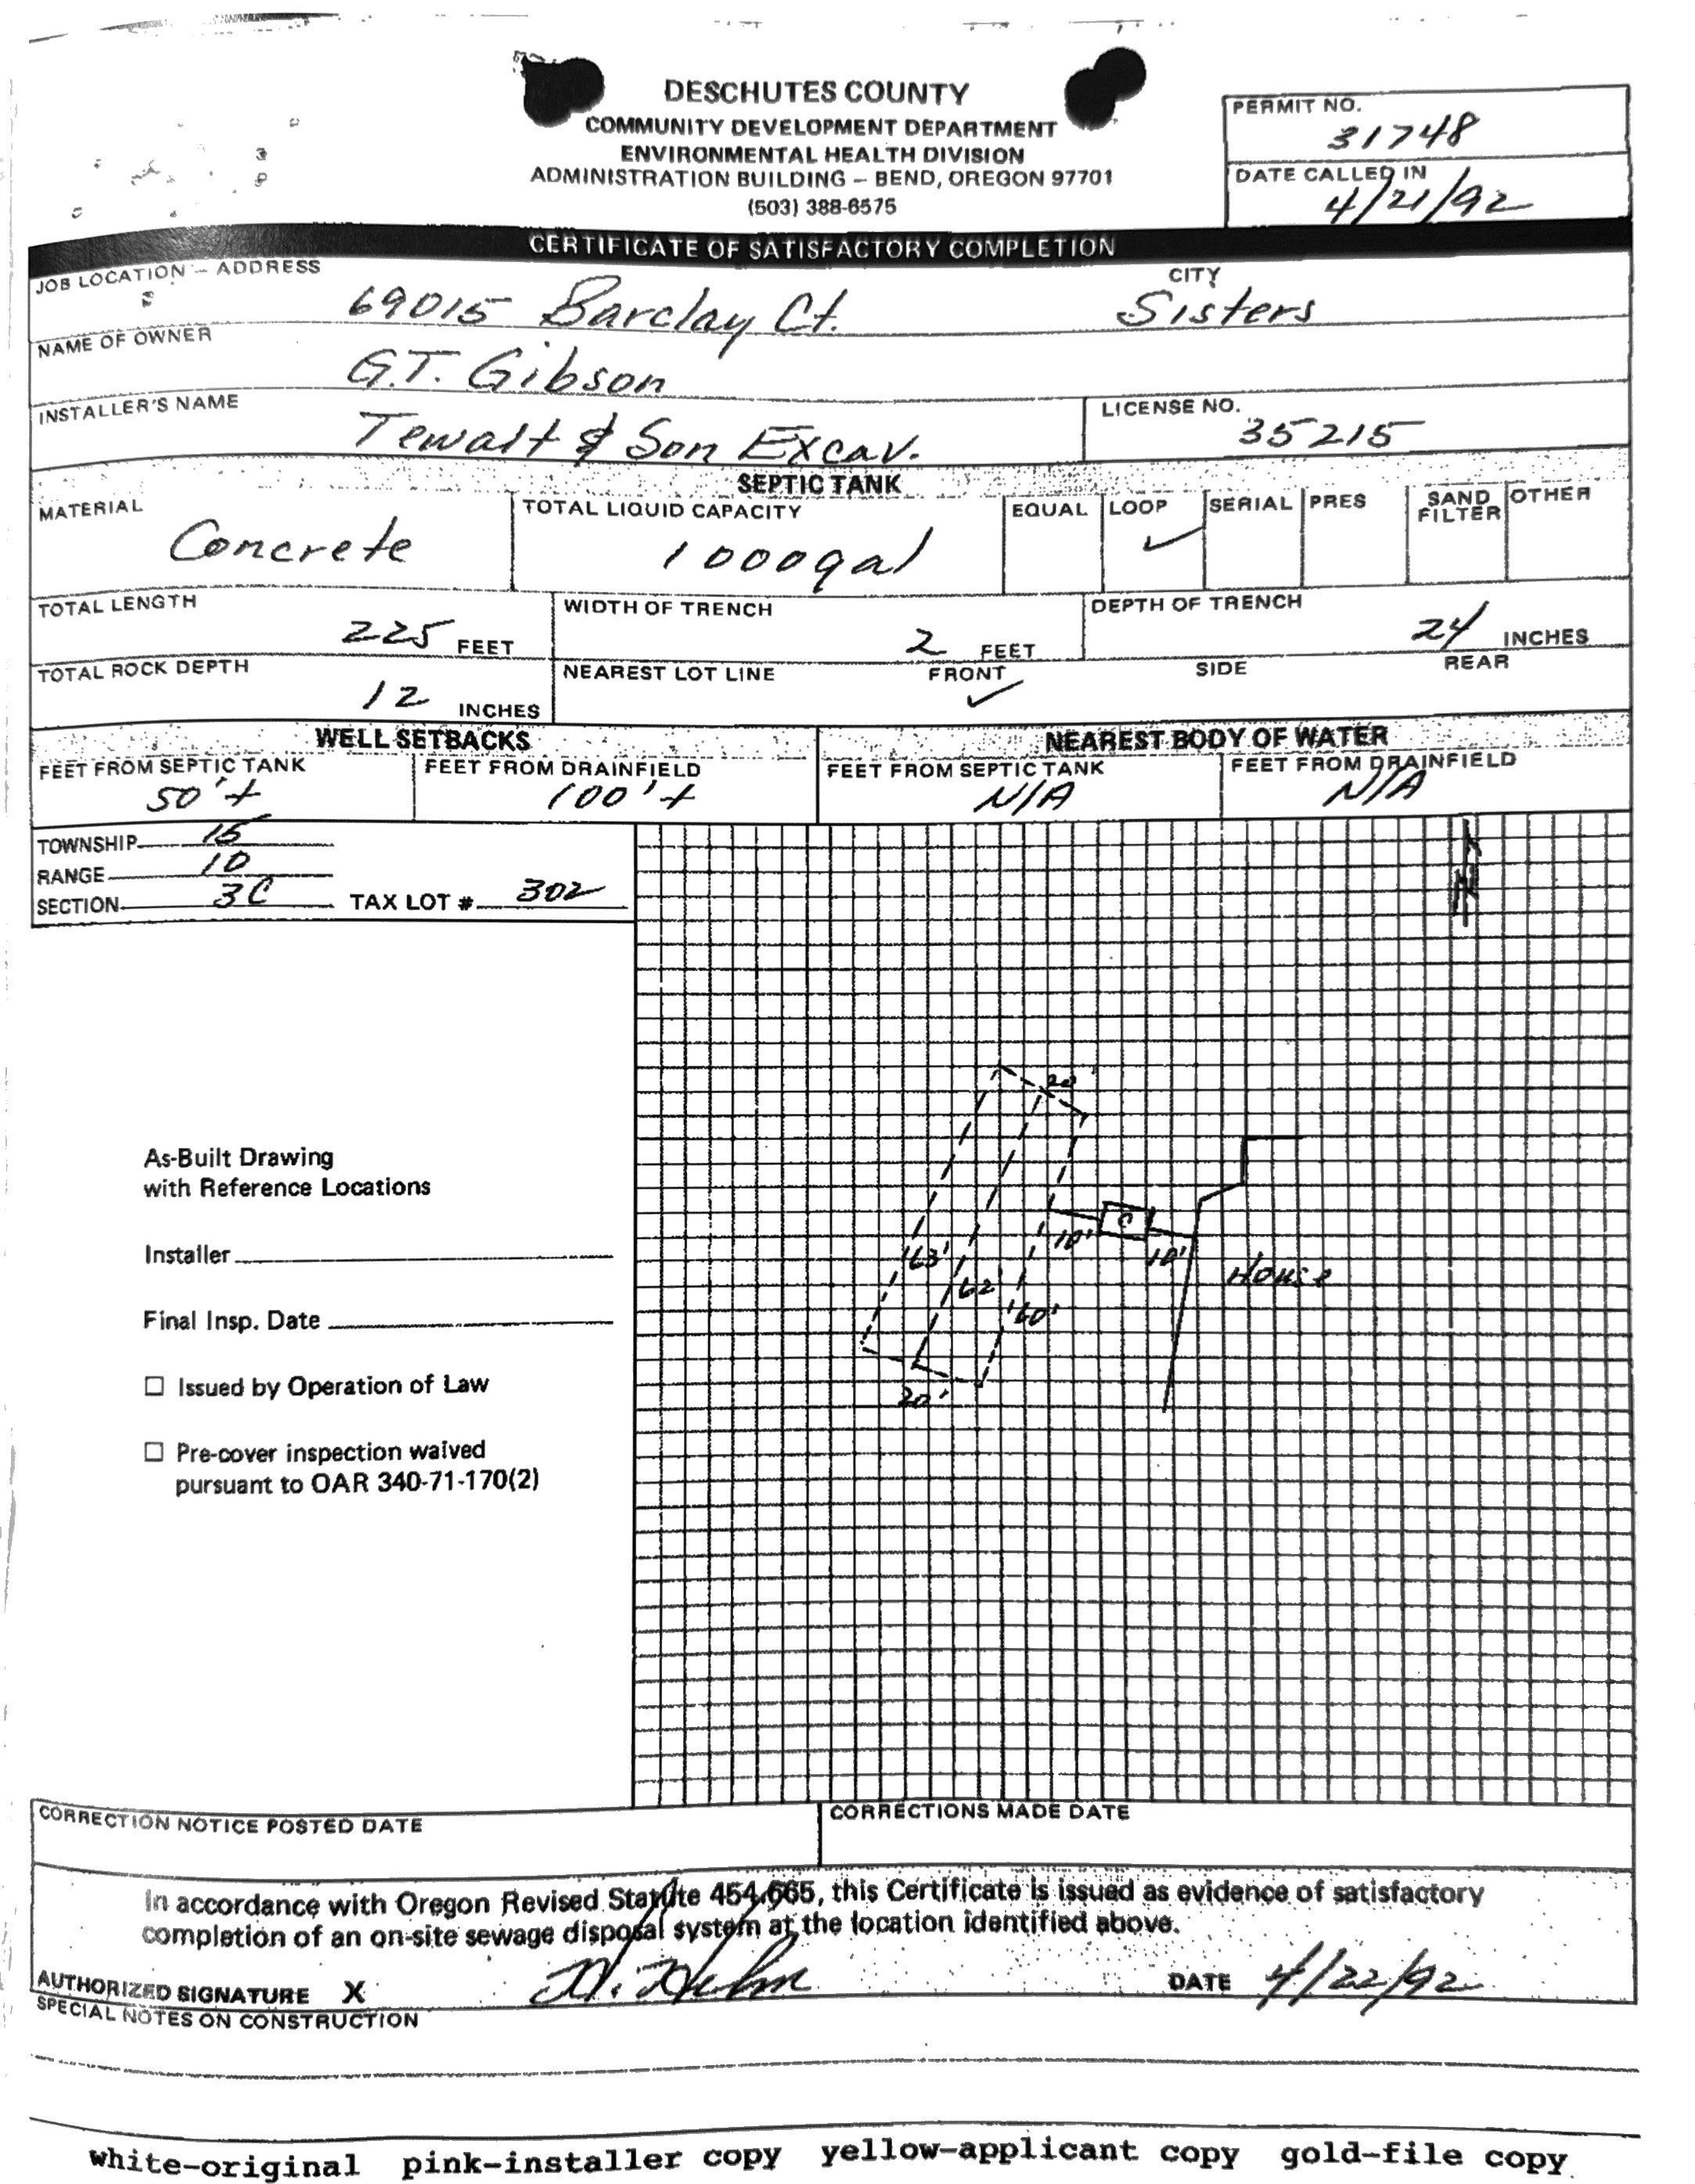 DESCHUTES COUNTY
COMMUNITY DEVELOPMENT DEPARTMENT
ENVIRONMENTAL HEALTH DIVISION
ADMINISTRATION BUILDING – BEND, OREGON 97701
(503) 388-6575
PERMIT NO.
31748
DATE CALLED IN
4/21/92
CERTIFICATE OF SATISFACTORY COMPLETION
JOB LOCATION – ADDRESS CITY
69015 Barclay Ct. Sisters
NAME OF OWNER
G.T. Gibson
INSTALLER'S NAME LICENSE NO.
Tewalt & Son Excav. 35215
SEPTIC TANK
MATERIAL TOTAL LIQUID CAPACITY EQUAL LOOP SERIAL PRES SAND FILTER OTHER
Concrete 1000gal ✓
TOTAL LENGTH WIDTH OF TRENCH DEPTH OF TRENCH
225 FEET 2 FEET 24 INCHES
TOTAL ROCK DEPTH NEAREST LOT LINE FRONT SIDE REAR
12 INCHES ✓
WELL SETBACKS NEAREST BODY OF WATER
FEET FROM SEPTIC TANK FEET FROM DRAINFIELD FEET FROM SEPTIC TANK FEET FROM DRAINFIELD
50'+ 100'+ N/A N/A
TOWNSHIP 15
RANGE 10
SECTION 3C TAX LOT # 302
N
20'
As-Built Drawing
with Reference Locations
C
10' 10'
Installer
63'
House
62'
60'
Final Insp. Date
20'
☐ Issued by Operation of Law
☐ Pre-cover inspection waived
pursuant to OAR 340-71-170(2)
CORRECTION NOTICE POSTED DATE CORRECTIONS MADE DATE
In accordance with Oregon Revised Statute 454.665, this Certificate is issued as evidence of satisfactory
completion of an on-site sewage disposal system at the location identified above.
AUTHORIZED SIGNATURE X DATE 4/22/92
SPECIAL NOTES ON CONSTRUCTION
white-original pink-installer copy yellow-applicant copy gold-file copy